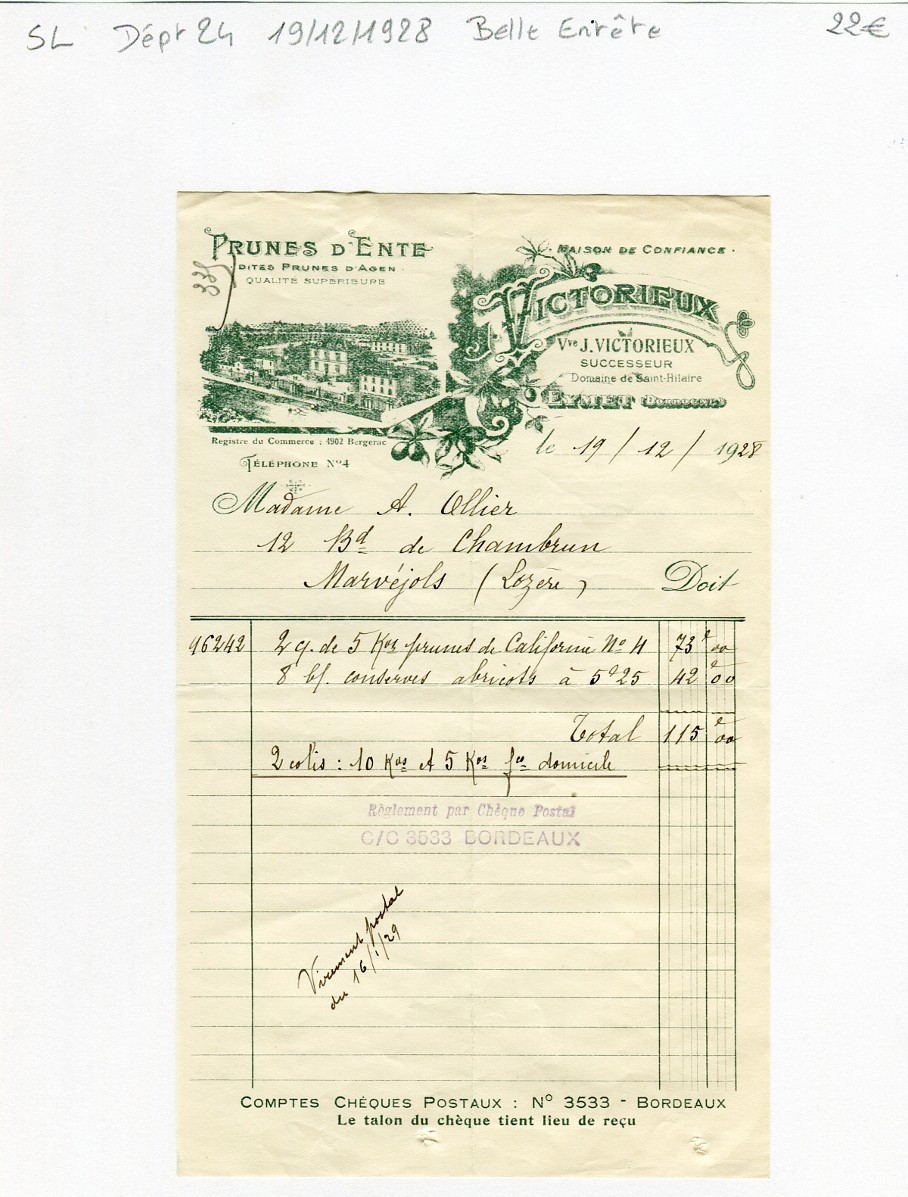 SL Dépt 24 19/12/1928 Belle Entête 22€
PRUNES D'ENTE
DITES PRUNES D'AGEN
QUALITÉ SUPÉRIEURE
335
MAISON DE CONFIANCE
VICTORIEUX
Vve J. VICTORIEUX
SUCCESSEUR
Domaine de Saint-Hilaire
EYMET (DORDOGNE)
Registre du Commerce : 4902 Bergerac
TÉLÉPHONE N° 4
le 19 / 12 / 1928
Madame A. Ollier
12 Bd de Chambrun
Marvéjols (Lozère) Doit
96242 2 q. de 5 Kos prunes de Californie No 4 73 f 00
8 bf. conserves abricots à 5f25 42 f 00
Total 115 f 00
2 colis : 10 Kos et 5 Kos fco domicile
Règlement par Chèque Postal
C/C 3533 BORDEAUX
Virement postal
du 16/1/29
COMPTES CHÈQUES POSTAUX : N° 3533 - BORDEAUX
Le talon du chèque tient lieu de reçu